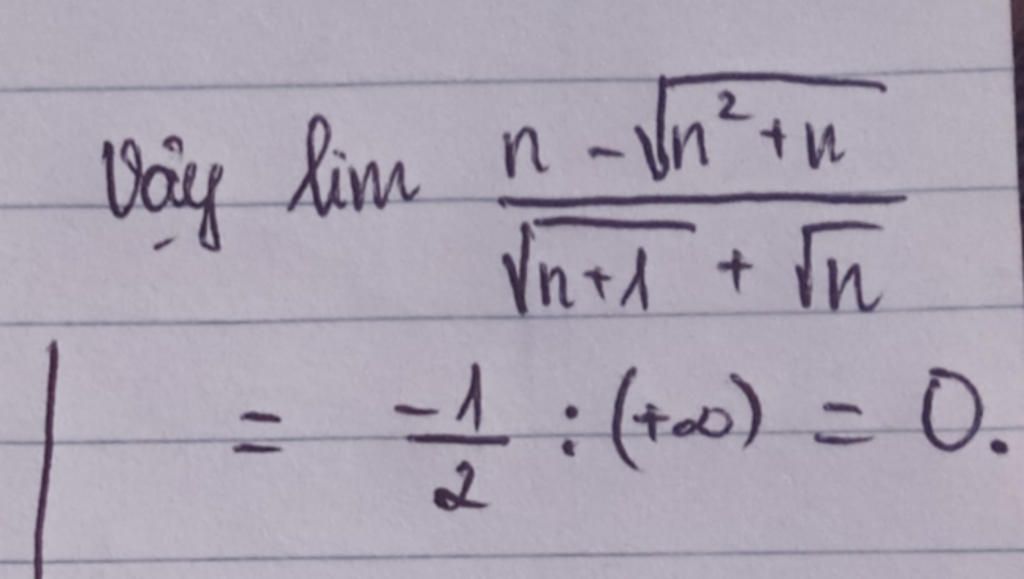 Vậy lim \frac{n - \sqrt{n^2 + n}}{\sqrt{n+1} + \sqrt{n}}
= \frac{-1}{2} : (+∞) = 0.